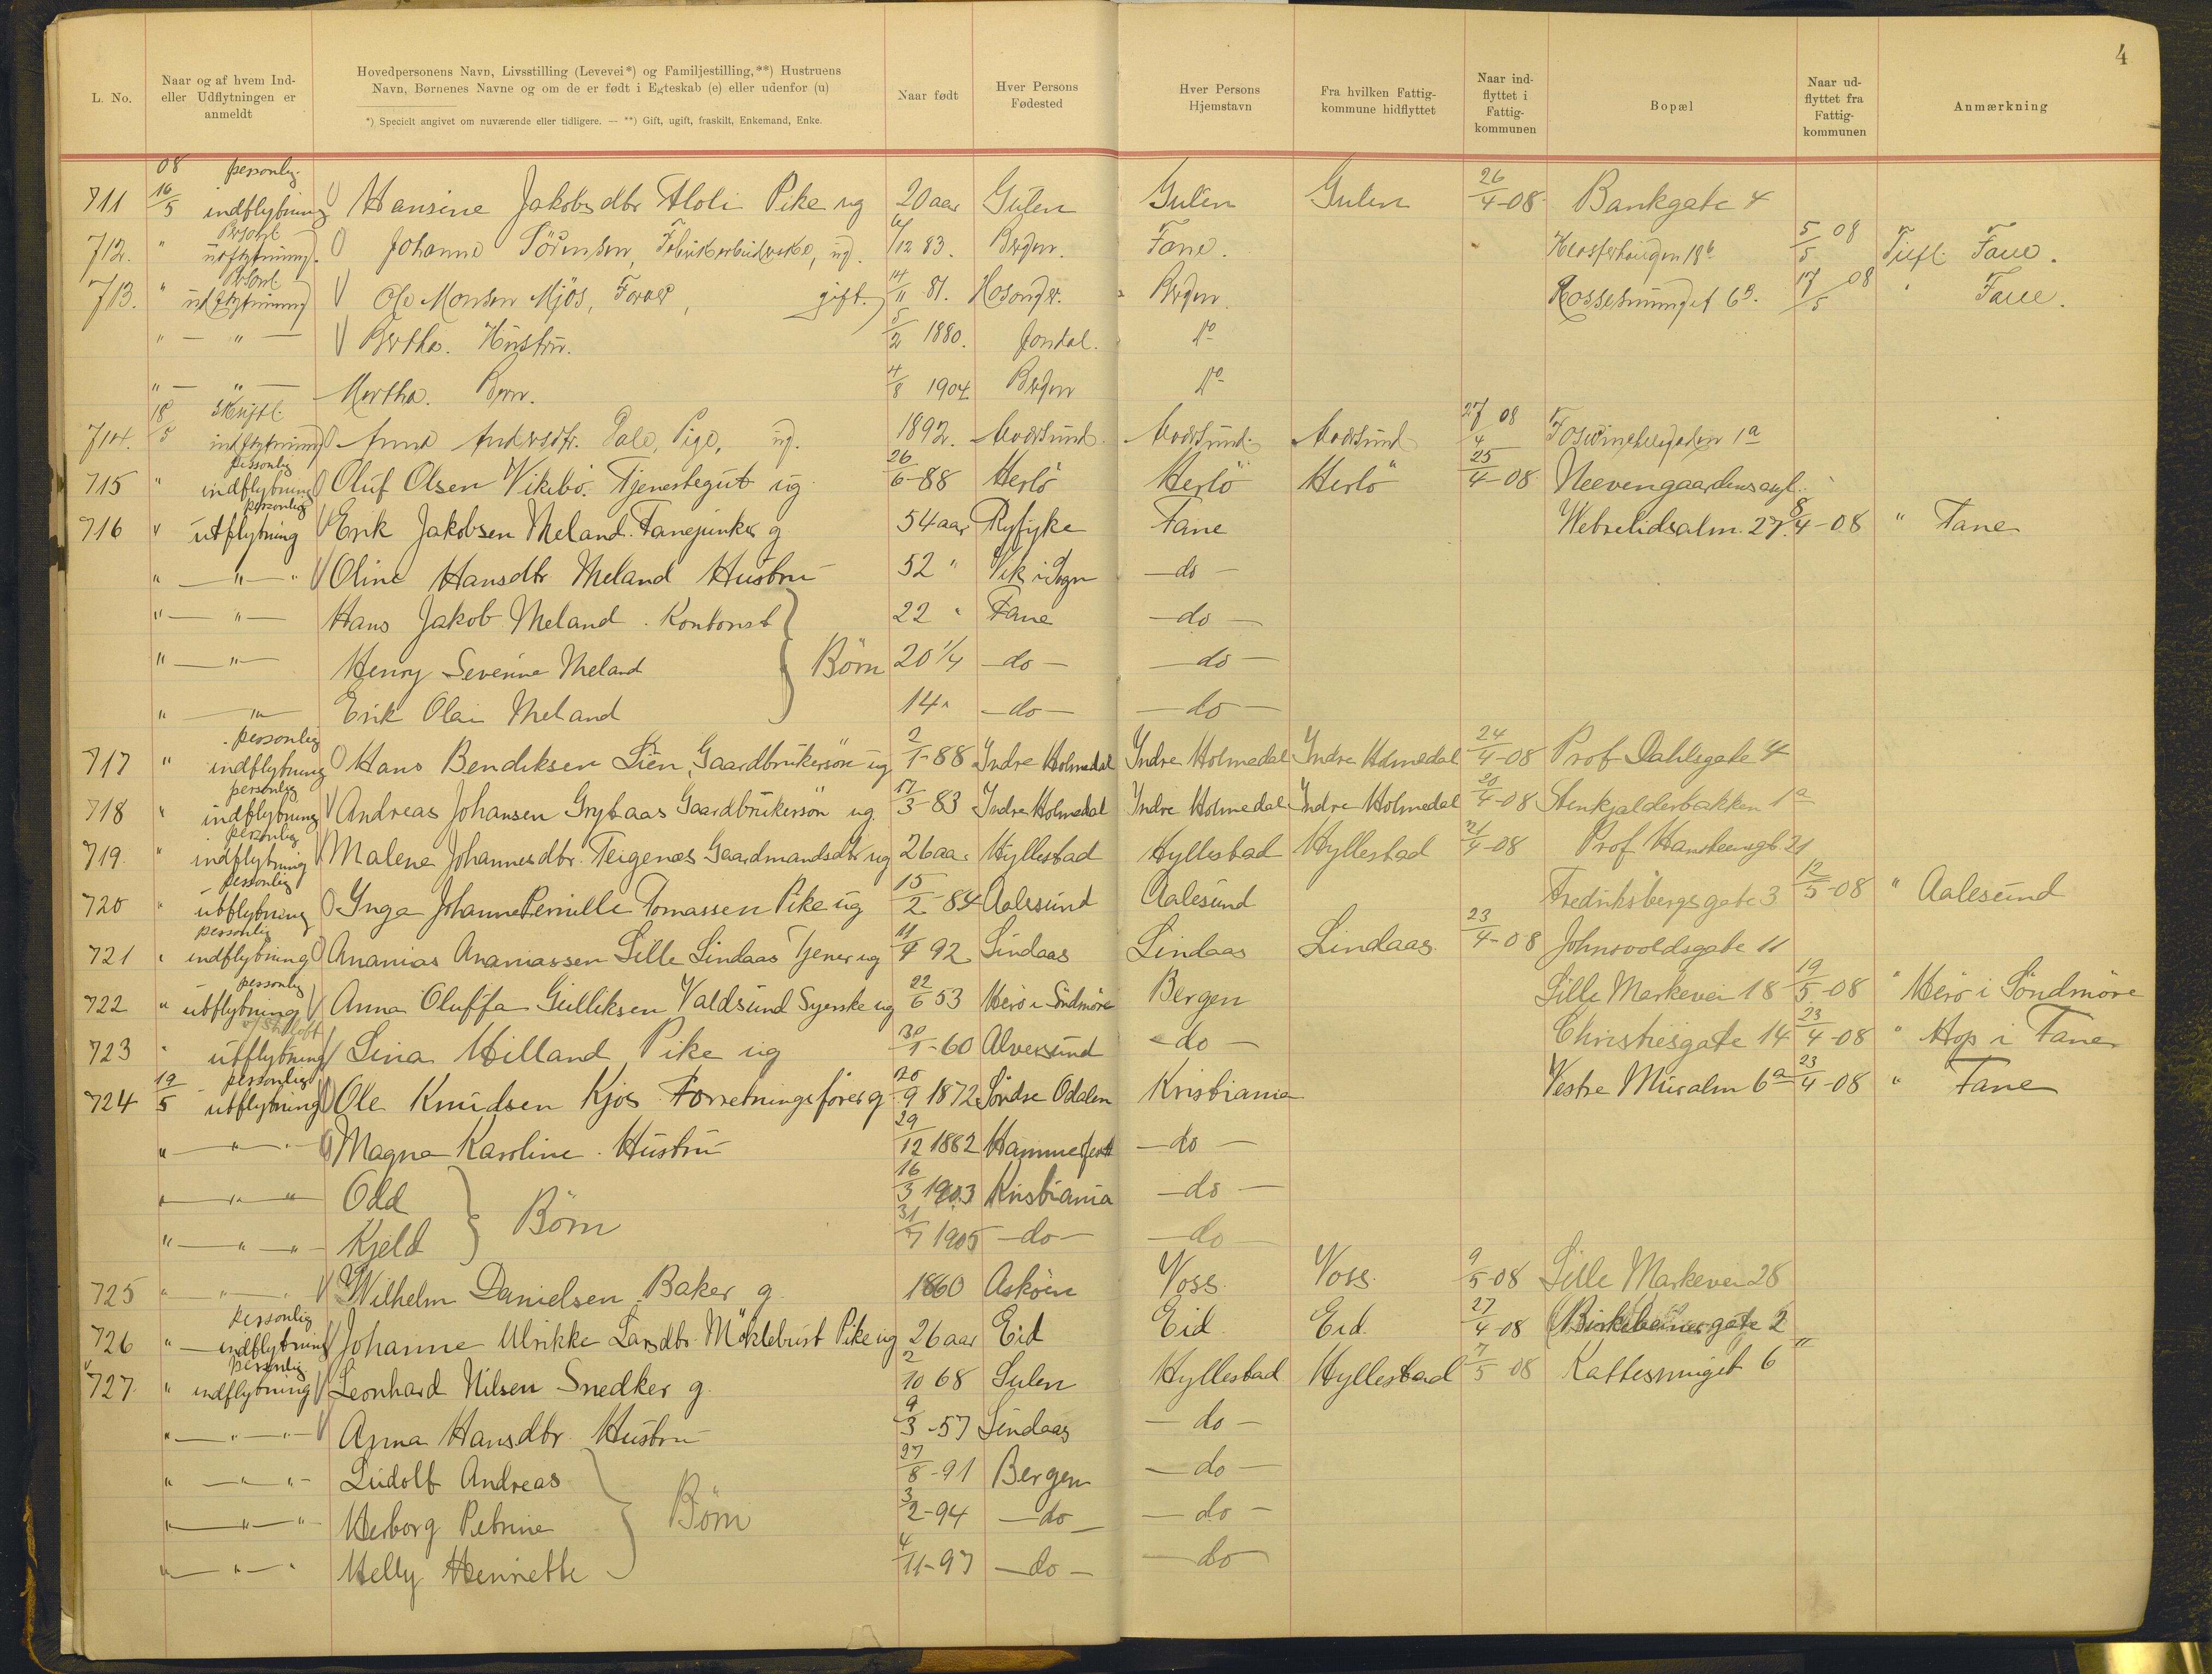 4
L. No.
Naar og af hvem Ind- eller Udflytningen er anmeldt
Hovedpersonens Navn, Livsstilling (Levevei*) og Familjestilling,**) Hustruens Navn, Børnenes Navne og om de er født i Egteskab (e) eller udenfor (u)
*) Specielt angivet om nuværende eller tidligere. — **) Gift, ugift, fraskilt, Enkemand, Enke.
Naar født
Hver Persons Fødested
Hver Persons Hjemstavn
Fra hvilken Fattigkommune hidflyttet
Naar indflyttet i Fattigkommunen
Bopæl
Naar udflyttet fra Fattigkommunen
Anmærkning
08 personlig
711 16/5 indflytning Hansine Jakobsdtr Pike ug 20 aar Gulen Gulen Gulen 26/4-08 Bankgate 4
712. " Persont udflytning. Johanne Sörensen, Fabrikarbeiderske, ug. /12 83. Bergen. Fane. Klosterhaugen 18b 5/5 08 Tilfl. Fane.
713. " Persont udflytning Ole Monsen Mjös, gift. 14/11 81. Hosanger. Bergen. Rossesmuget 6B. 17/5 08 " Fane.
" — " — Bertha. Hustru. 5/2 1880. Jondal. Do
" — " — Martha. Barn. 4/8 1904 Bergen Do
714. 18/5 Skriftl. indflytning Anna Andersdtr. Dale, Pige, ug. 1892. 27/4 08 1a
715 " personlig indflytning Oluf Olsen Vikebö. Tjenestegut ug 26/6-88 Herlö Herlö Herlö 25/4-08 Neevengaardens asyl.
716 " personlig utflytning Erik Jakobsen Meland. Fanejunker g 54 aar Ryfylke Fane Wetrelidsalm. 27. 8/4-08 " Fane
" — " — " Oline Hansdtr Meland Hustru 52 " Vik i Sogn — do —
" — " — Hans Jakob Meland. Kontorist 22 " Fane — do —
" — " — Henry Severine Meland Börn 20 1/4 — do — — do —
" — " — Erik Olai Meland 14 " — do — — do —
717 " personlig indflytning Hans Bendiksen Lien, Gaardbrukersön ug 2/1-88 Indre Holmedal Indre Holmedal Indre Holmedal 24/4-08 Prof Dahlsgate 4
718 " personlig indflytning Andreas Johansen Grytaas Gaardbrukersön ug. 17/3-83 Indre Holmedal Indre Holmedal Indre Holmedal 20/4-08 Stenkjalderbakken 1a
719. " personlig indflytning Malene Johannesdtr. Teigenæs Gaardmandsdtr ug 26 aar Hyllestad Hyllestad Hyllestad 21/4-08 Prof Hansteensgt. 21
720 " personlig utflytning Inga Johanne Pernille Tomassen Pike ug 15/2-84 Aalesund Aalesund Fredriksbergsgate 3 12/5-08 " Aalesund
721 " personlig indflytning Ananias Ananiassen Lille Lindaas Tjener ug 11/4 92 Lindaas Lindaas Lindaas 23/4-08 Johnsvoldsgate 11
722 " personlig utflytning Anna Oluffa Gulliksen Valdsund Syerske ug 22/6 53 Herö i Söndmöre Bergen Lille Markevei 18 19/5-08 " Herö i Söndmöre
723 " utflytning Lina Milland Pike ug 30/1-60 Alversund — do — Christiesgate 14 23/4-08 " Hop i Fane
724 19/5 personlig utflytning Ole Knudsen Kjos Forretningsförer g 20/9 1872 Söndre Odalen Kristiania Vestre Muralm 6a 23/4-08 " Fane
" — " — " Magna Karoline. Hustru 29/12 1882 Hammerfest — do —
" — " — " Odd Börn 16/3 1903 Kristiania — do —
" — " — " Kjeld 31/7 1905 — do — — do —
725 " — " — " Wilhelm Danielsen. Baker g 1860 Asköen Voss. Voss. 9/5-08 Lille Markevei 28
726 " personlig indflytning Johanne Ulrikke Larsdtr. Möklebust Pike ug 26 aar Eid Eid Eid. 27/4-08 Birkebeinergate 2
727. " personlig indflytning Leonhard Nilsen Snedker g. 2/10 68 Sulen Hyllestad Hyllestad 7/5 08 Kattesmuget 6
" — " — " Anna Hansdtr Hustru 9/3-57 Lindaas — do —
" — " — Ludolf Andreas 27/8-91 Bergen — do —
" — " — " Herborg Petrine Börn 3/2-94 — do — — do —
" — " — " Helly Henriette 4/11-97 — do — — do